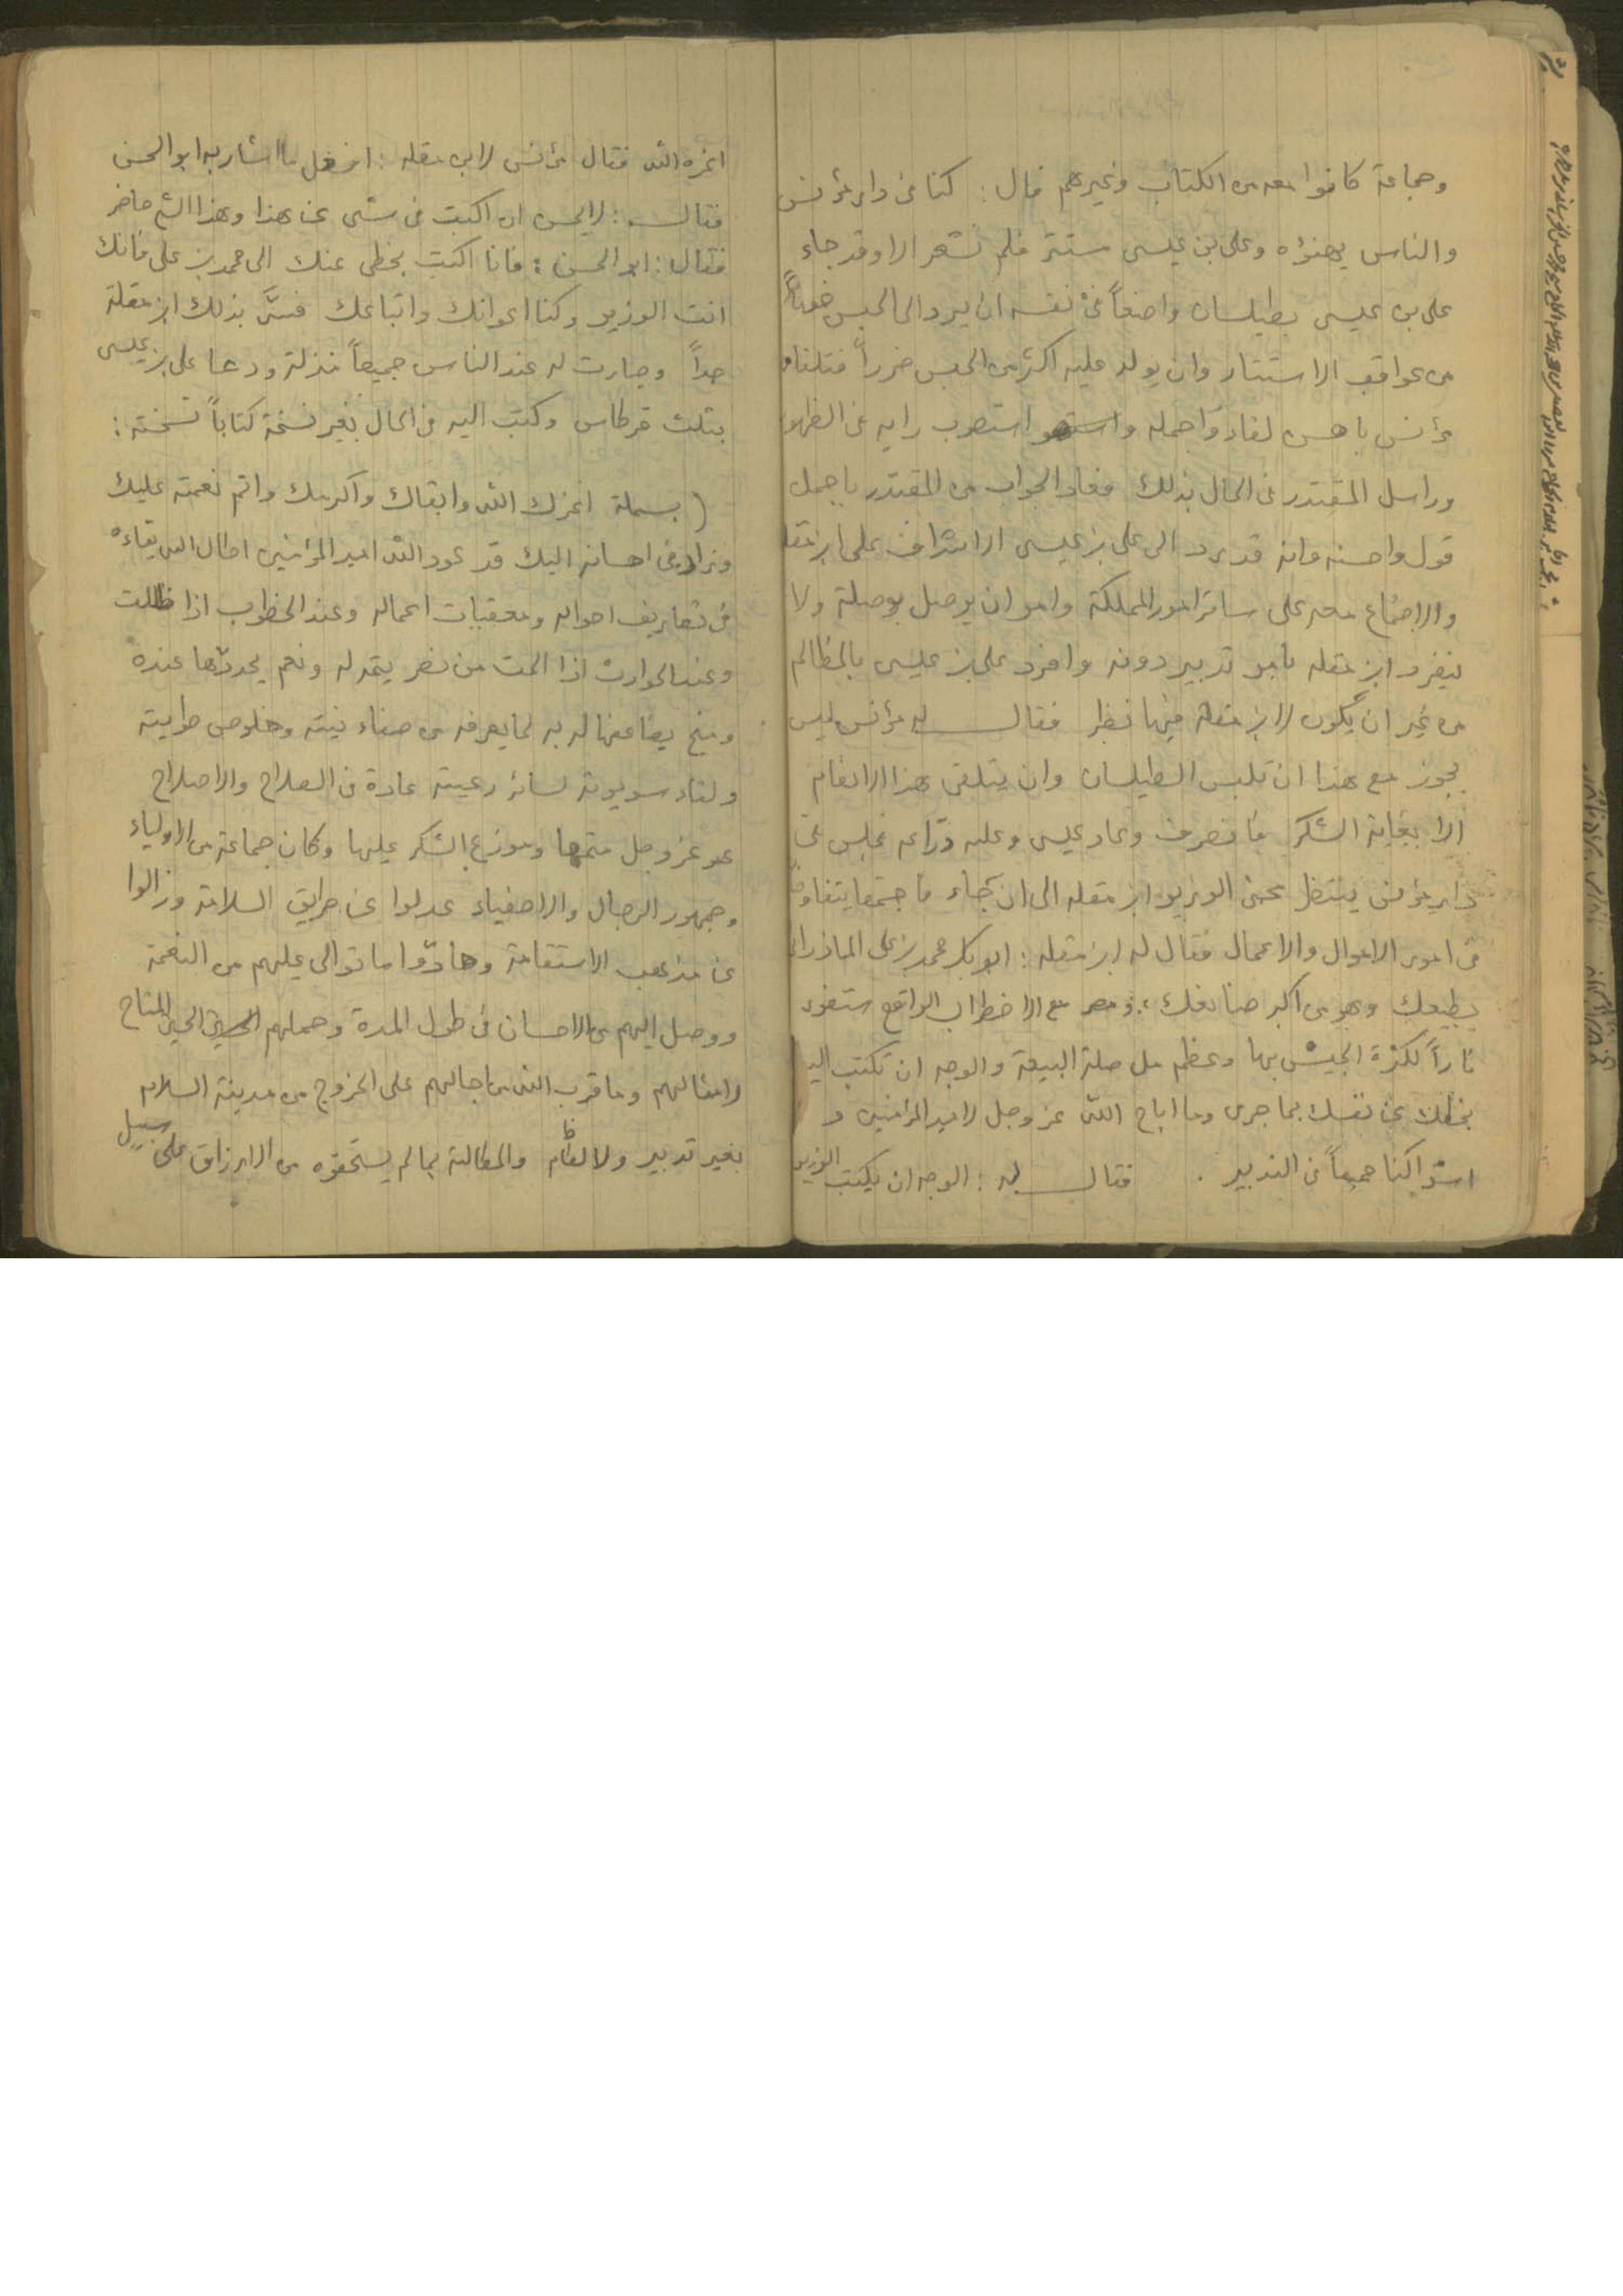 وجماعة كانوا معه من الكتاب وغيرهم قال : كنا في دار مؤنس
والناس يهنؤه وعلى بن عيسى مستتر فلم نشعر الا وقد جاء
على بن عيسى بطيلسان واضعاً في نفسه ان يرد الى الحبس خوفاً
من عواقب الاستتار وان يولد عليه اكثر من الحبس ضرراً فتلقاه
مؤنس باحسن لقاء واجمله واستصوب رايه في الظهور
وراسل المقتدر في الحال بذلك فعاد الجواب من المقتدر باجمل
قول واحسنه وانه قد رد الى على بن عيسى الاشراف على ابن مقلة
والاجتماع معه على سائر امور المملكة وامر ان يوصل بوصلة ولا
ينفرد ابن مقله بامر تدبير دونه وافرد على بن عيسى بالمظالم
من غير ان يكون لابن مقلة فيها نظر فقال له مؤنس ليس
يجوز مع هذا ان تلبس الطيلسان وان يتلقى هذا الانعام
الا بغاية الشكر فانصرف وعاد عيسى وعليه دراعه فجلس في
دار مؤنس ينتظر مجئ الوزير ابن مقله الى ان جاء فاجتمعا يتفاوضا
في امور الاموال والاعمال فقال له ابن مقله : ابو بكر محمد بن على الماذرائي
يطيعك وهو من اكبر صنائعك ، ومصر مع الاضطراب الواقع ستفور
ناراً لكثرة الجيش بها وعظم مال صلة البيعة والوجه ان تكتب اليه
بخطك عن نفسك بما جرى وما اباح الله عز وجل لامير المؤمنين و
اشراكنا جميعاً في التدبير . فقال له : الوجه ان يكتب الوزير
اعزه الله فقال مؤنس لابن مقله : افعل ما اشار به ابو الحسن
فقال : لا يحسن ان اكتب في شئ من هذا وهذا الشيخ حاضر
فقال : ابو الحسن : فانا اكتب بخطى عنك الى محمد بن على فانك
انت الوزير وكنا اعوانك واتباعك فسرّ بذلك ابن مقلة
جداً وصارت له عند الناس جميعاً منزلة ودعا على بن عيسى
بثلث قرطاس وكتب اليه في الحال بغير نسخة كتاباً نسخته :
( بسملة اعزك الله وابقاك واكرمك واتم نعمته عليك
وزاد في احسانه اليك قد عود الله امير المؤمنين اطال الله بقاءه
في تصاريف احواله ومعقبات اعماله وعند الخطوب اذا ظللت
وعند الحوادث اذا المت من نصر يتمه له ونعم يجددها عنده
ومنح يضاعفها له به لما يعرفه من صفاء نيته وخلوص طويته
ولقاء سويرته لسائر رعيته عادة في الصلاح والاصلاح
هو عز وجل متمها وموزع الشكر عليها وكان جماعة من الاولياء
وجمهور الرجال والاصفياء عدلوا عن طريق السلامة وزالوا
عن مذهب الاستقامة وحادّوا ما توالى عليهم من النعمة
ووصل اليهم من الاحسان في طول المدة وحملهم الحين المتاح
لامثالهم وما قرب الله من اجالهم على الخروج من مدينة السلام
بغير تدبير ولا نظام والمطالبة بما لم يستحقوه من الارزاق على سبيل